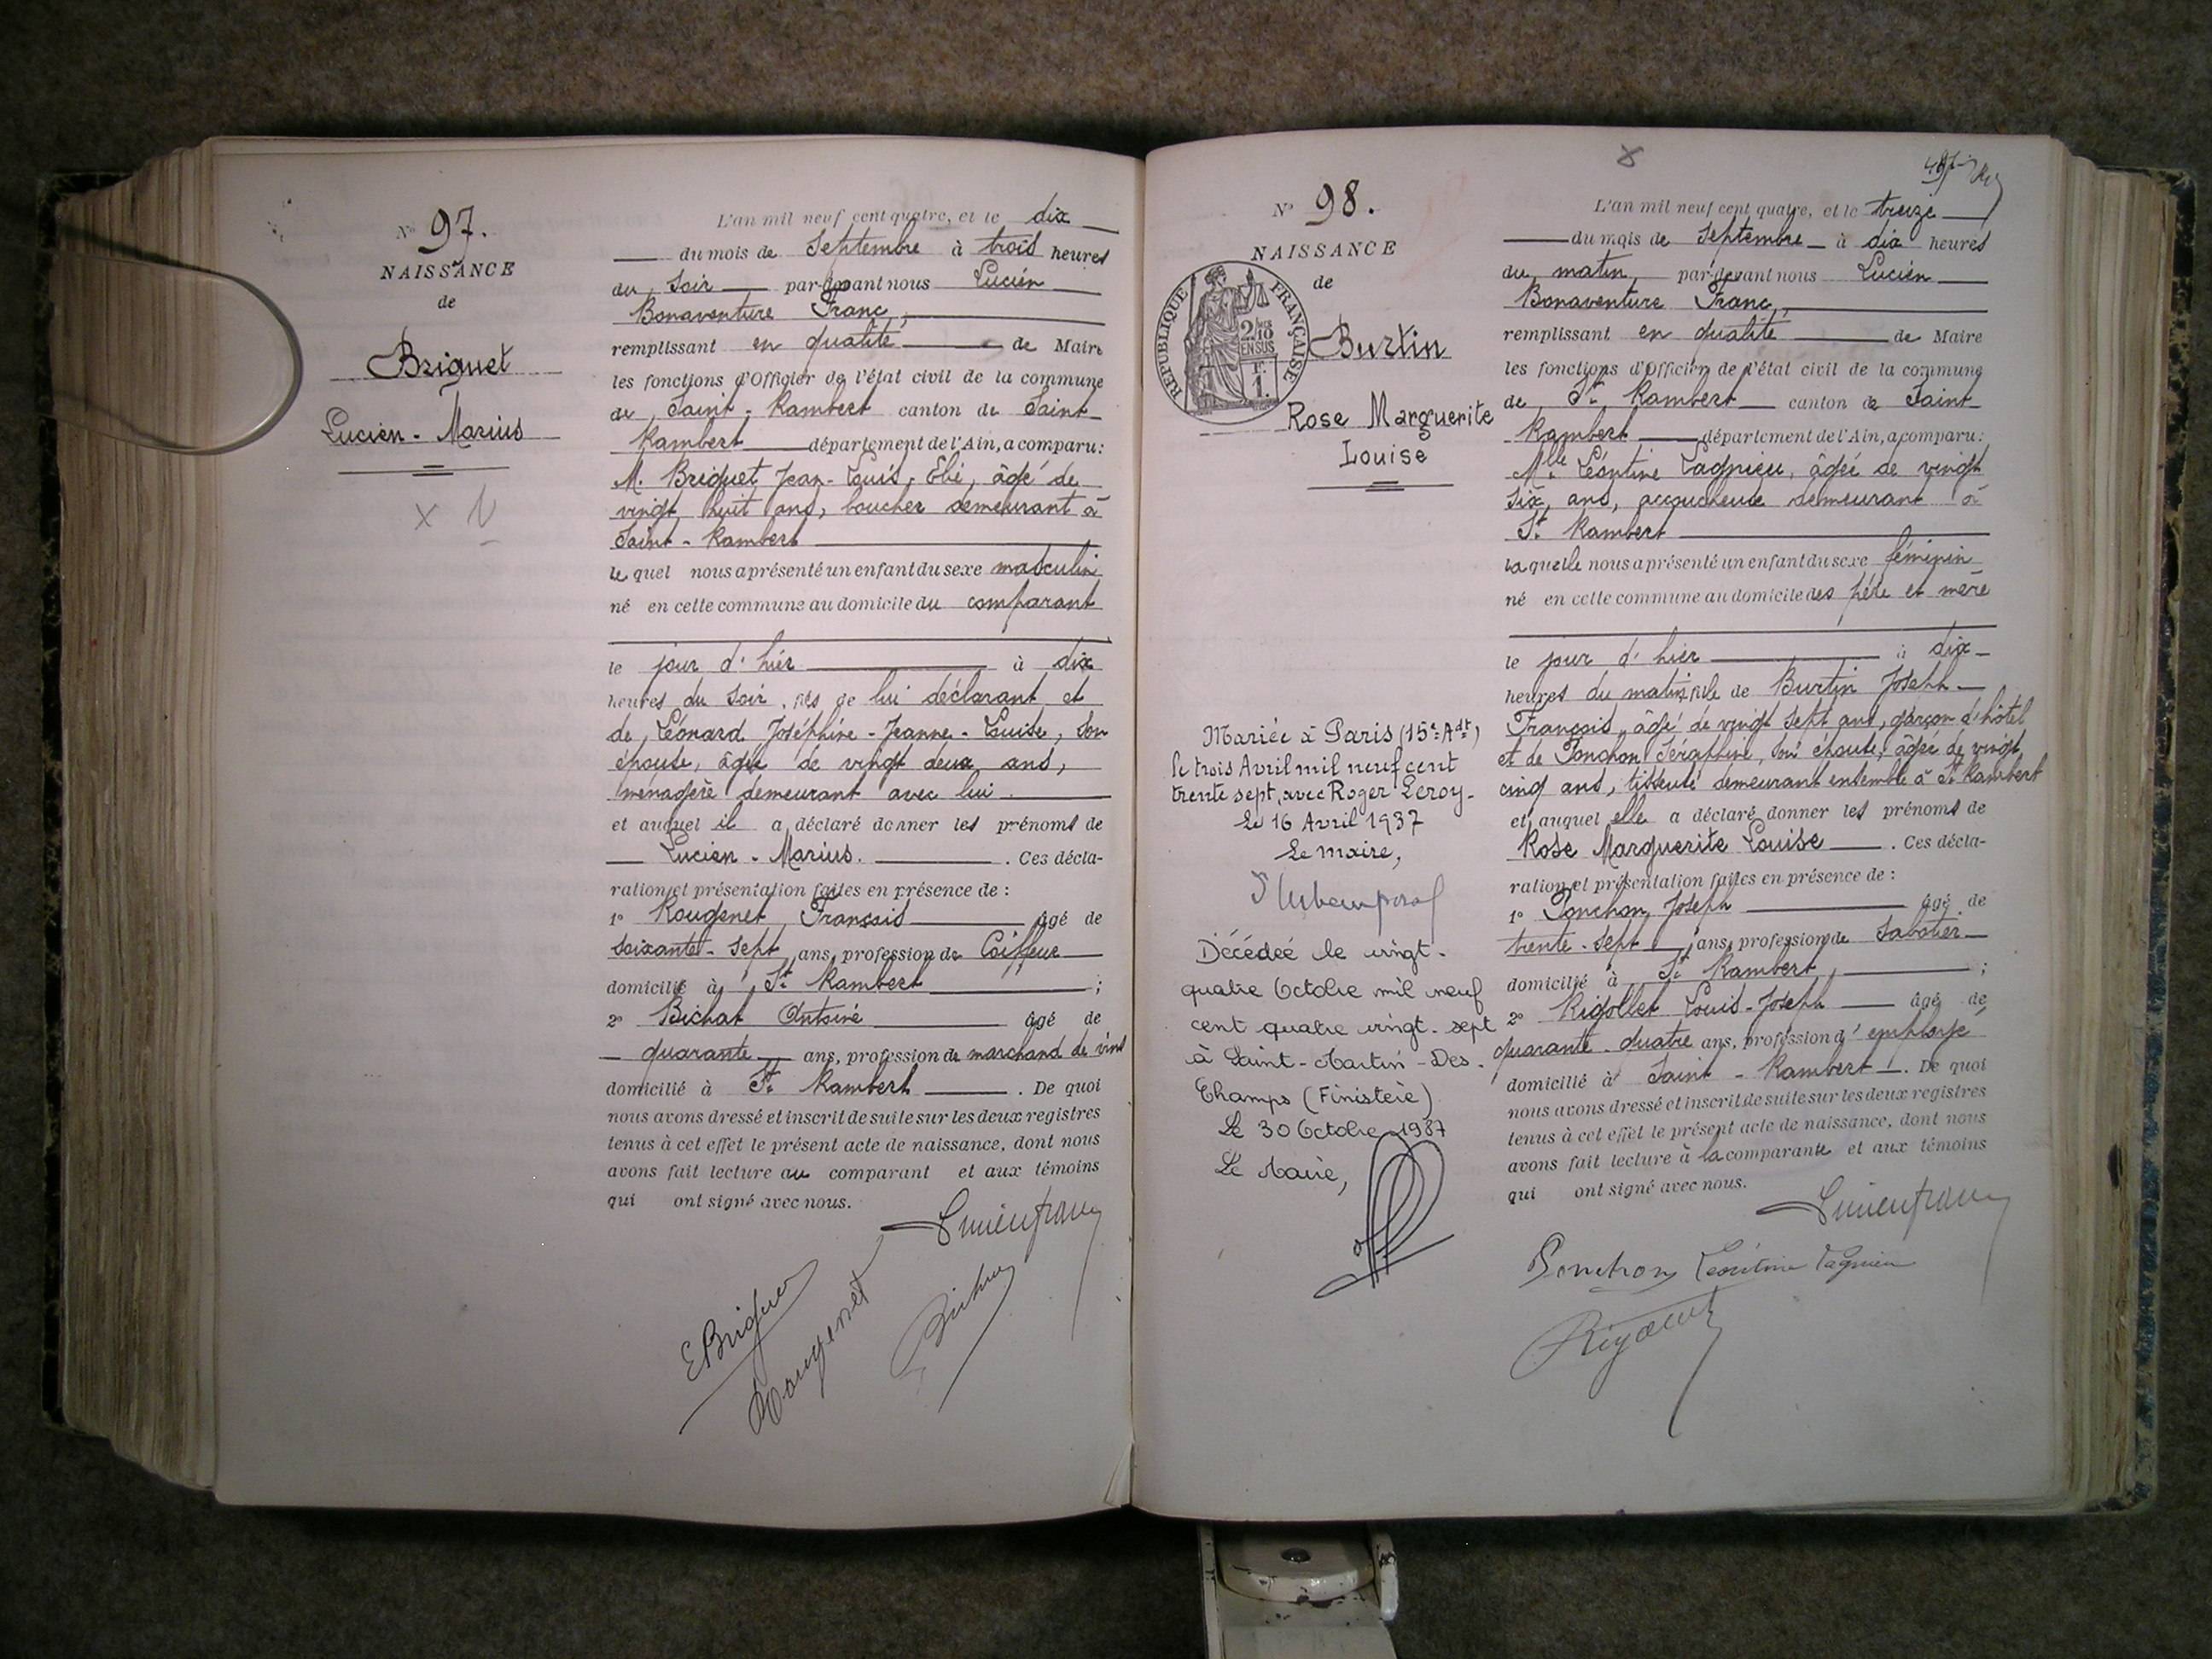 N° 97.
NAISSANCE
de
Briguet
Lucien - Marius
L'an mil neuf cent quatre, et le dix
du mois de Septembre à trois heures
du soir par-devant nous Lucien
Bonaventure Franc,
remplissant en qualité de Maire
les fonctions d'Officier de l'état civil de la commune
de Saint-Rambert canton de Saint
Rambert département de l'Ain, a comparu:
M. Briguet Jean-Louis, Elie, âgé de
vingt huit ans, boucher demeurant à
Saint-Rambert
lequel nous a présenté un enfant du sexe masculin
né en cette commune au domicile du comparant
le jour d'hier à dix
heures du soir, de lui déclarant et
de Léonard Joséphine-Jeanne-Louise, son
épouse, âgée de vingt deux ans,
ménagère demeurant avec lui
et auquel il a déclaré donner les prénoms de
Lucien - Marius. Ces décla-
ration et présentation faites en présence de :
1° Rougenet, François âgé de
soixante-sept ans, profession de Coiffeur
domicilié à St Rambert ;
2° Bichat Antoine âgé de
quarante ans, profession de marchand de vins
domicilié à St Rambert. De quoi
nous avons dressé et inscrit de suite sur les deux registres
tenus à cet effet le présent acte de naissance, dont nous
avons fait lecture au comparant et aux témoins
qui ont signé avec nous.
Lucien franc
EBriguet
Rougenet
Bichat
N° 98.
NAISSANCE
de
RÉPUBLIQUE FRANÇAISE
2/10
EN SUS
1.
Burtin
Rose Marguerite
Louise
Mariée à Paris (15e Adt)
le trois Avril mil neuf cent
trente sept, avec Roger Leroy.
Le 16 Avril 1937
Le maire,
Décédée le vingt-
quatre Octobre mil neuf
cent quatre vingt-sept
à Saint-Martin-Des-
Champs (Finistère)
Le 30 Octobre 1987
Le Maire,
L'an mil neuf cent quatre, et le treize
du mois de Septembre à dix heures
du matin, par-devant nous Lucien
Bonaventure Franc,
remplissant en qualité de Maire
les fonctions d'Officier de l'état civil de la commune
de St Rambert canton de Saint
Rambert département de l'Ain, a comparu:
Mlle Léontine Lagnieu, âgée de vingt
six ans, accoucheuse demeurant à
St Rambert
laquelle nous a présenté un enfant du sexe féminin
né en cette commune au domicile des père et mère
le jour d'hier à dix
heures du matin, fille de Burtin Joseph
François, âgé de vingt sept ans, garçon d'hôtel
et de Ponchon Séraphine, son épouse, âgée de vingt
cinq ans, tisseuse demeurant ensemble à St Rambert
et auquel elle a déclaré donner les prénoms de
Rose Marguerite Louise. Ces décla-
ration et présentation faites en présence de :
1° Ponchon Joseph âgé de
trente-sept ans, profession de sabotier
domicilié à St Rambert, ;
2° Rigollet Louis-Joseph âgé de
quarante-quatre ans, profession d'employé
domicilié à Saint-Rambert. De quoi
nous avons dressé et inscrit de suite sur les deux registres
tenus à cet effet le présent acte de naissance, dont nous
avons fait lecture à la comparante et aux témoins
qui ont signé avec nous.
Lucien franc
Ponchon Léontine Lagnieu